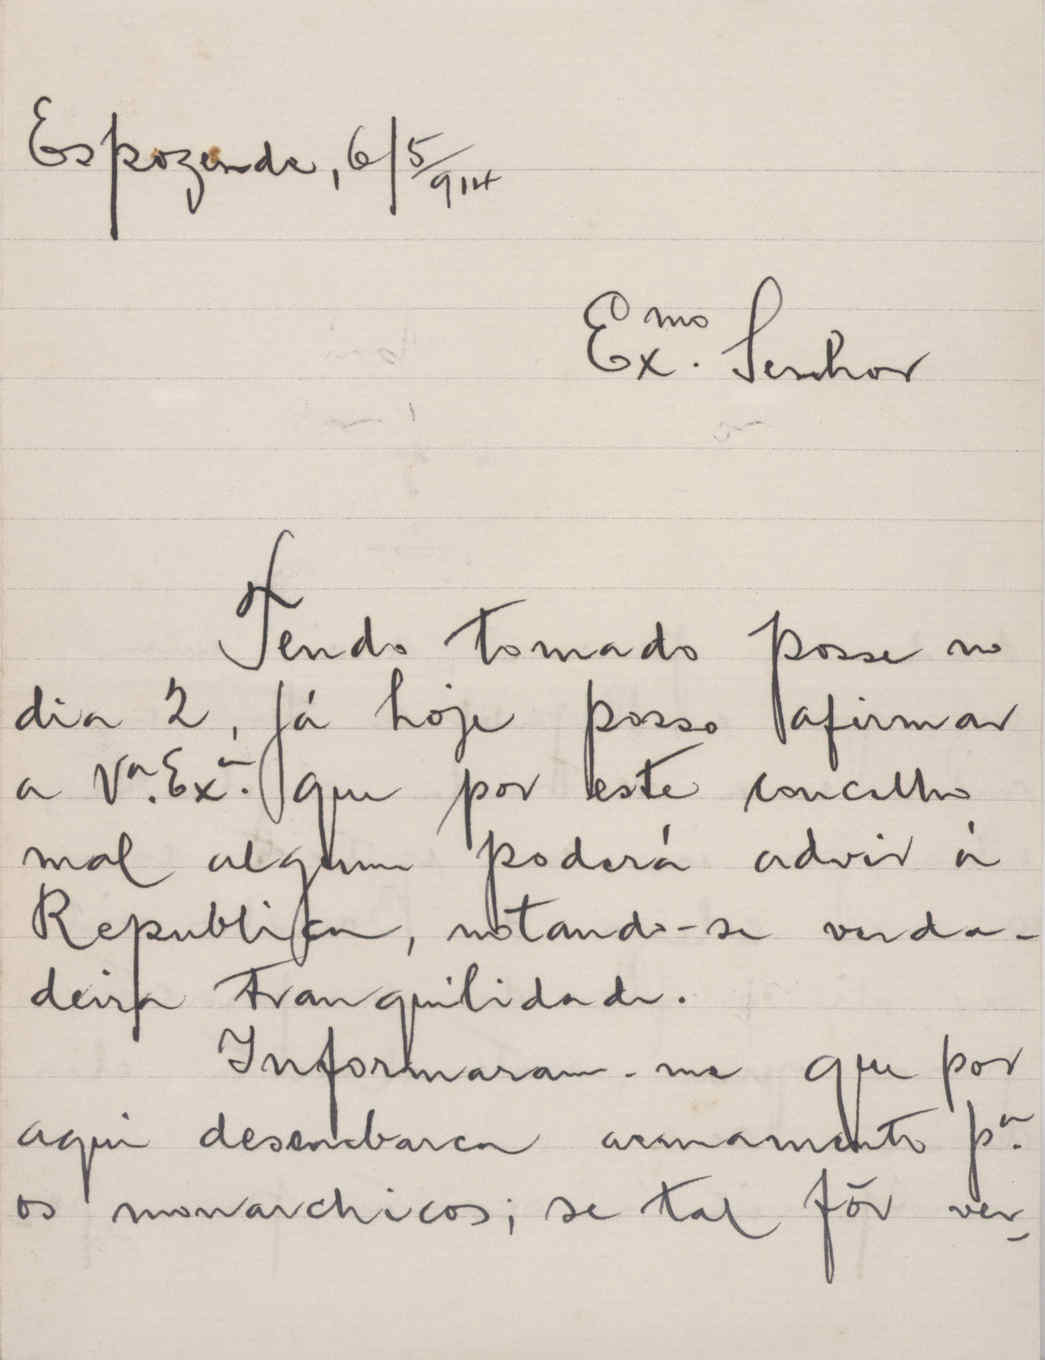 Espozende, 6/5/914
Exmo. Senhor
Tendo tomado posse no
dia 2, já hoje posso afirmar
a Va. Exa. que por este concelho
mal algum poderá advir á
Republica, notando-se verda-
deira tranquilidade.
Informaram-me que por
aqui desembarca armamento pa.
os monarchicos; se tal fôr ver-